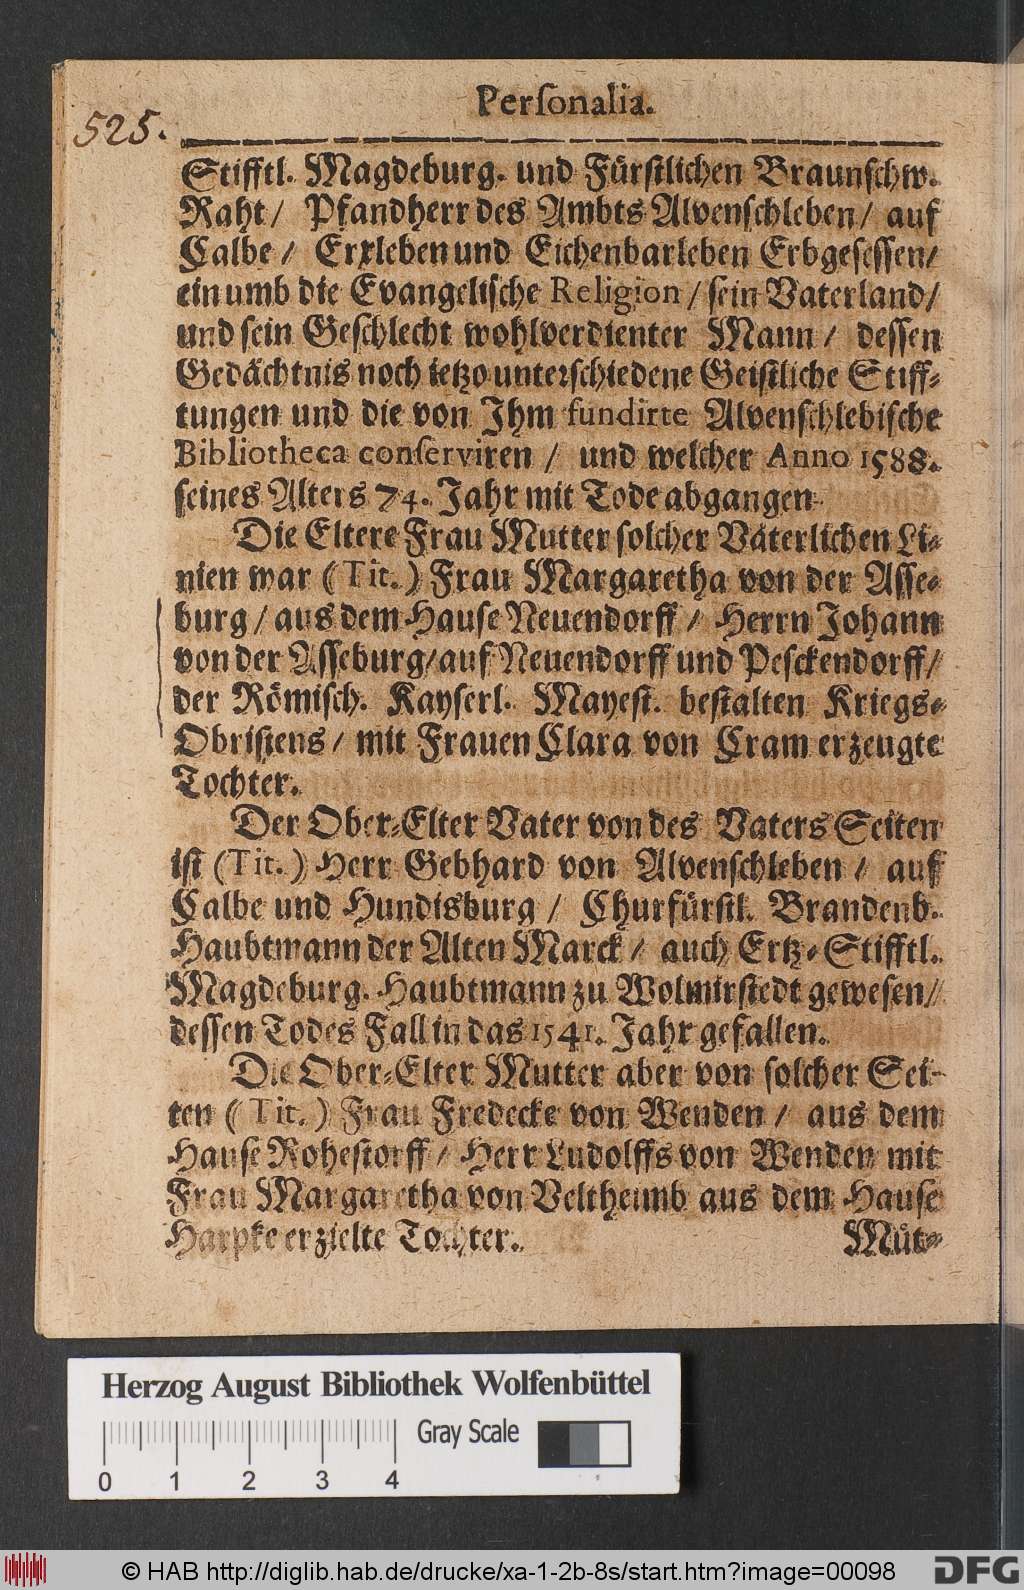 525.
Personalia.
Stifftl. Magdeburg. und Fürstlichen Braunschw.
Raht/ Pfandherr des Ambts Alvenschleben/ auf
Calbe/ Erxleben und Eichenbarleben Erbgesessen/
ein umb die Evangelische Religion/ sein Vaterland/
und sein Geschlecht wohlverdienter Mann/ dessen
Gedächtnis noch ietzo unterschiedene Geistliche Stiff-
tungen und die von Ihm fundirte Alvenschlebische
Bibliotheca conserviren/ und welcher Anno 1588.
seines Alters 74. Jahr mit Tode abgangen.
Die Eltere Frau Mutter solcher Väterlichen Li-
nien war (Tit.) Frau Margaretha von der Asse-
burg/ aus dem Hause Neuendorff/ Herrn Johann
von der Asseburg/ auf Neuendorff und Pesckendorff/
der Römisch. Kayserl. Mayest. bestalten Kriegs-
Obristens/ mit Frauen Clara von Cram erzeugte
Tochter.
Der Ober-Elter Vater von des Vaters Seiten
ist (Tit.) Herr Gebhard von Alvenschleben/ auf
Calbe und Hundisburg/ Churfürstl. Brandenb.
Haubtmann der Alten Marck/ auch Ertz-Stifftl.
Magdeburg. Haubtmann zu Wolmirstedt gewesen/
dessen Todes Fall in das 1541. Jahr gefallen.
Die Ober-Elter Mutter aber von solcher Sei-
ten (Tit.) Frau Fredecke von Wenden/ aus dem
Hause Rohestorff/ Herr Ludolffs von Wenden mit
Frau Margaretha von Veltheimb aus dem Hause
Harpke erzielte Tochter.
Müt-
Herzog August Bibliothek Wolfenbüttel
Gray Scale
0 1 2 3 4
© HAB http://diglib.hab.de/drucke/xa-1-2b-8s/start.htm?image=00098
DFG